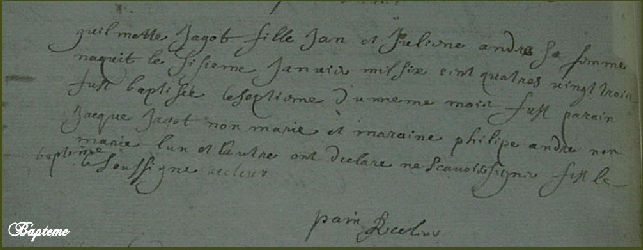 gueilmette Jagot fille Jan et Julienne andre Sa femme
naquit le Sisieme Janvier mil six cent quatres vingt trois
fust baptisée le septieme du meme mois fust parain
Jacque Jagot non marie et maraine philipe andre non
marie lun et lautre ont declare ne Scavoir signer fust le
bapteme
le Soussigne recteur
Recteur
Bapteme